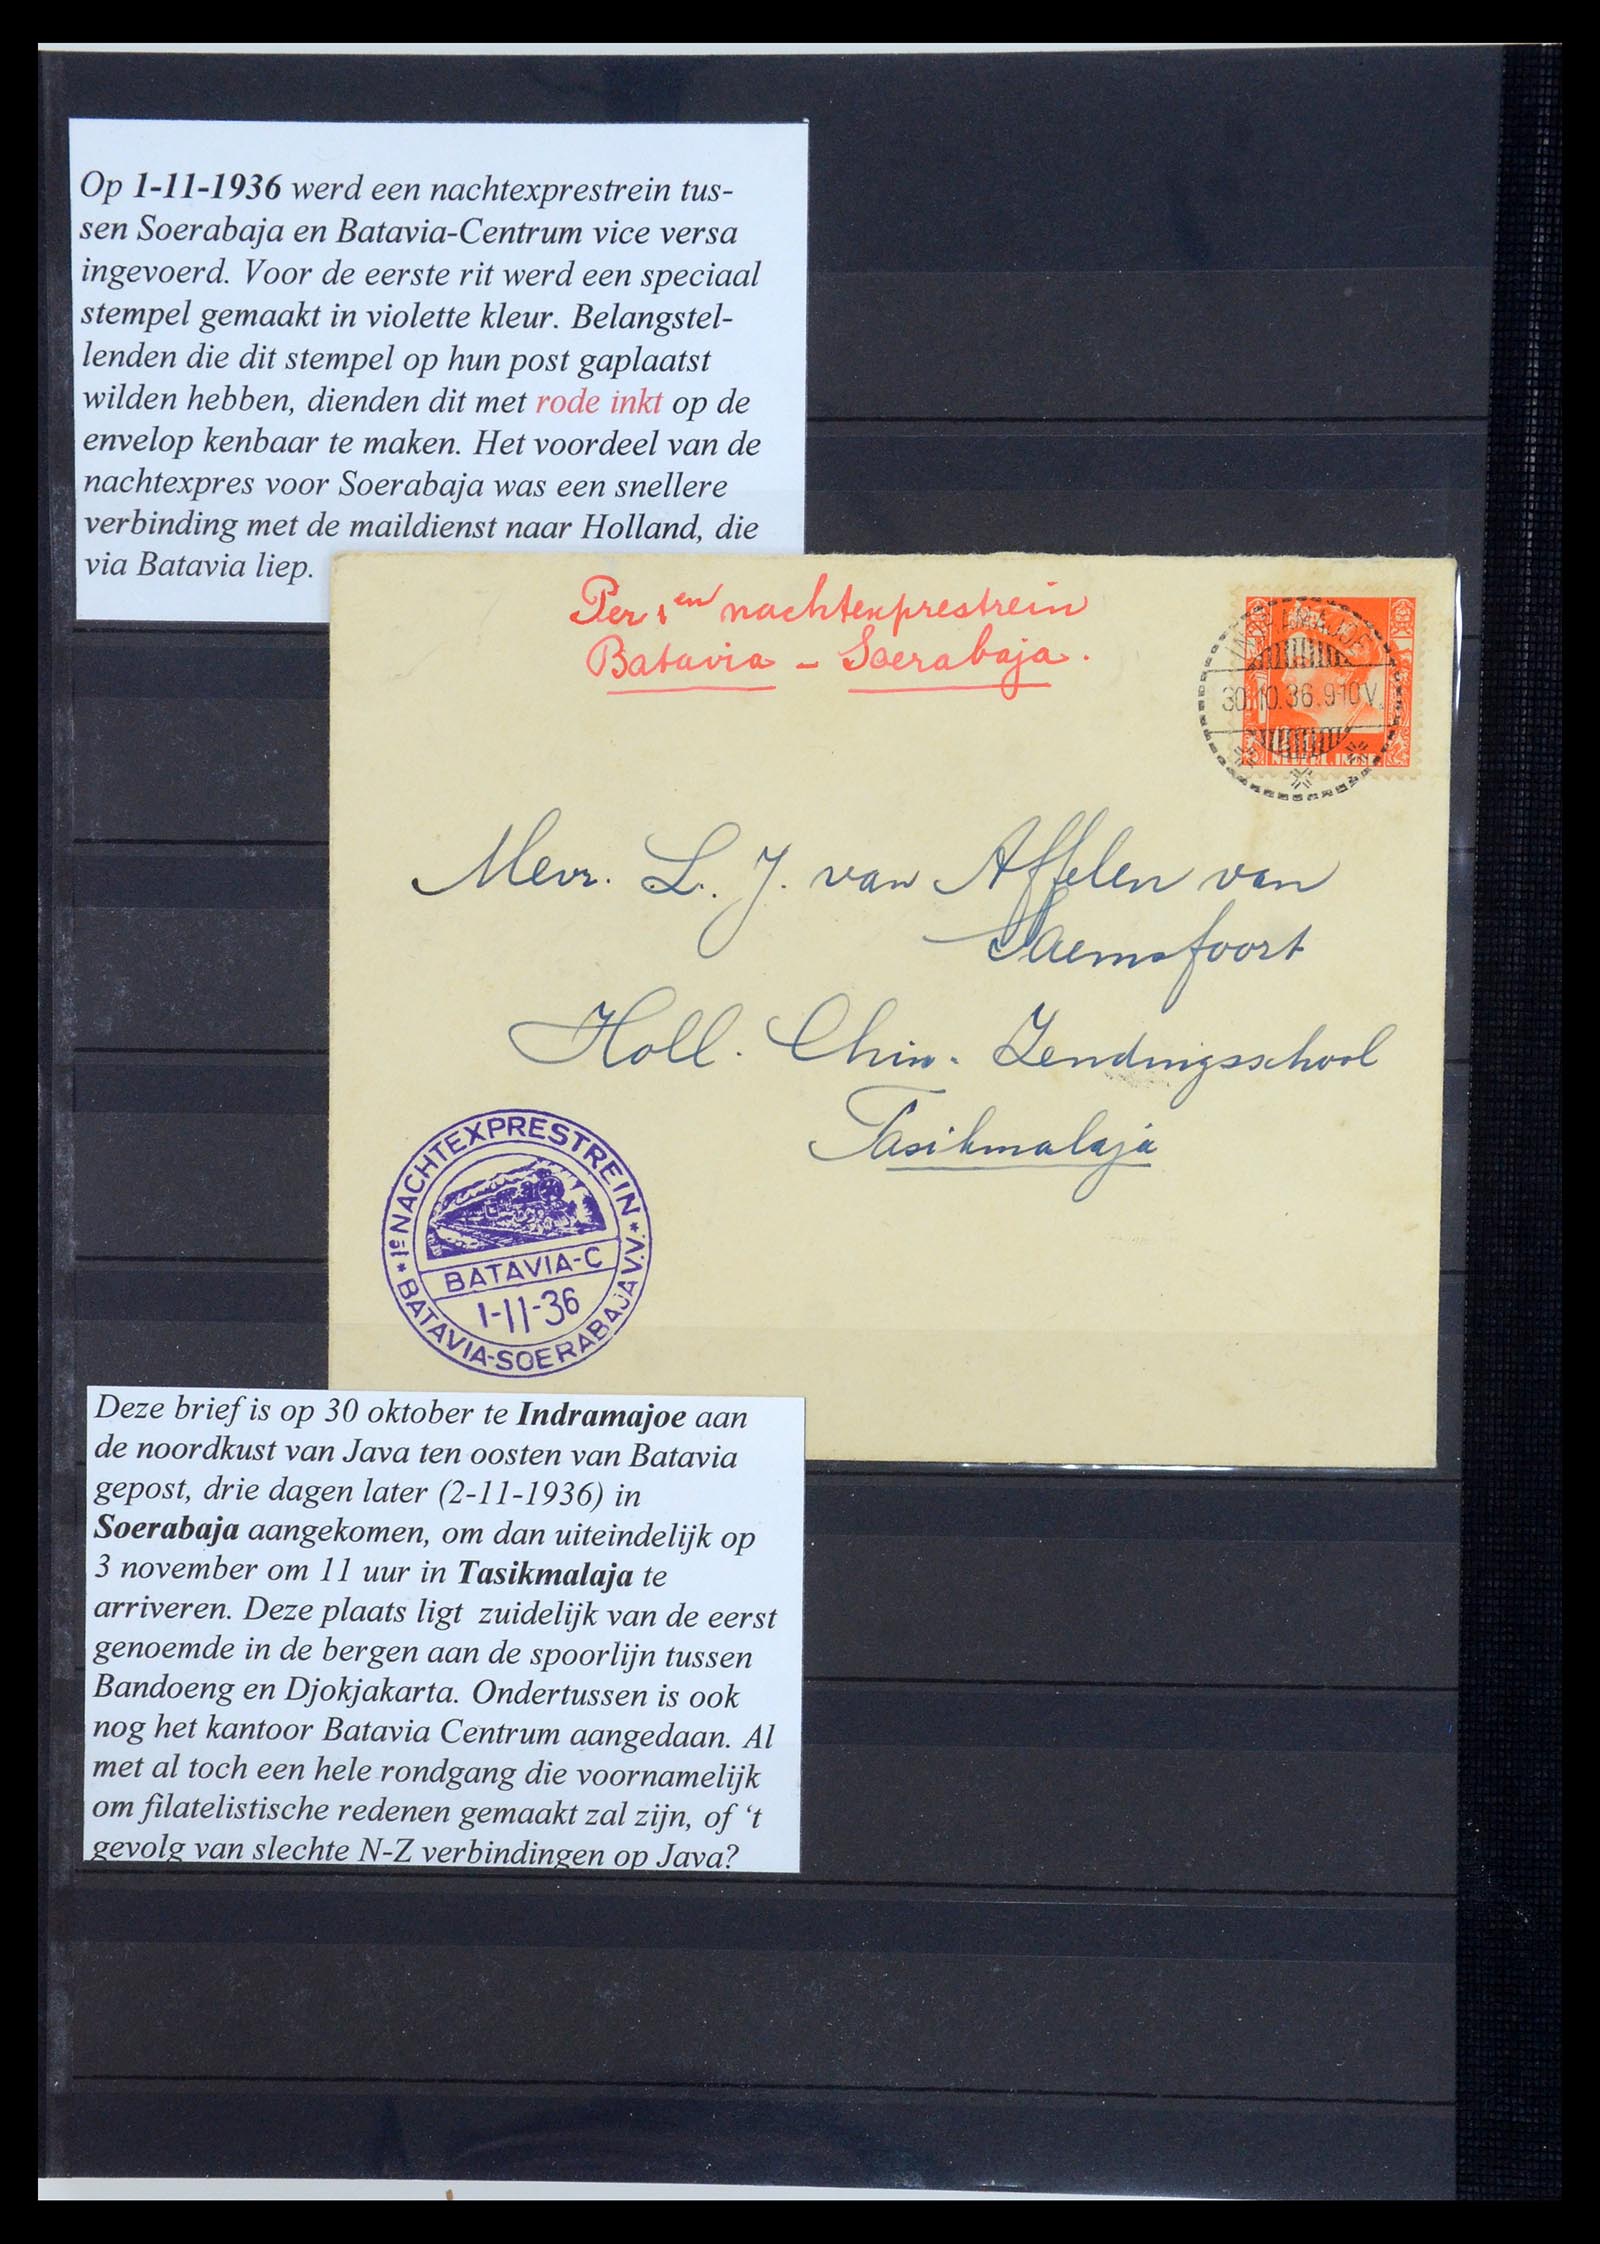 Op 1-11-1936 werd een nachtexprestrein tus-
sen Soerabaja en Batavia-Centrum vice versa
ingevoerd. Voor de eerste rit werd een speciaal
stempel gemaakt in violette kleur. Belangstel-
lenden die dit stempel op hun post gaplaatst
wilden hebben, dienden dit met rode inkt op de
envelop kenbaar te maken. Het voordeel van de
nachtexpres voor Soerabaja was een snellere
verbinding met de maildienst naar Holland, die
via Batavia liep.
Per 1en nachtexprestrein
Batavia - Soerabaja.
INDRAMAJOE
30.10.36.9-10V.
NEDERL. INDIE
Mevr. L. J. van Affelen van
Saemsfoort
Holl. Chin. Zendingsschool
Tasikmalaja
* 1e NACHTEXPRESTREIN *
BATAVIA-C
1-11-36
BATAVIA-SOERABAJA V.V.
Deze brief is op 30 oktober te Indramajoe aan
de noordkust van Java ten oosten van Batavia
gepost, drie dagen later (2-11-1936) in
Soerabaja aangekomen, om dan uiteindelijk op
3 november om 11 uur in Tasikmalaja te
arriveren. Deze plaats ligt zuidelijk van de eerst
genoemde in de bergen aan de spoorlijn tussen
Bandoeng en Djokjakarta. Ondertussen is ook
nog het kantoor Batavia Centrum aangedaan. Al
met al toch een hele rondgang die voornamelijk
om filatelistische redenen gemaakt zal zijn, of ‘t
gevolg van slechte N-Z verbindingen op Java?